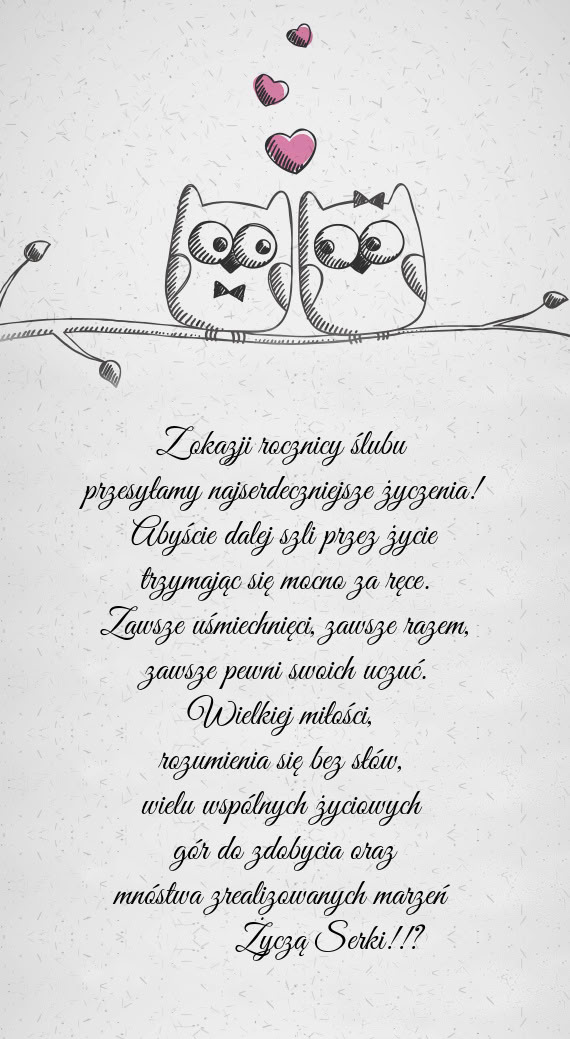 Z okazji rocznicy ślubu
przesyłamy najserdeczniejsze życzenia!
Abyście dalej szli przez życie
trzymając się mocno za ręce.
Zawsze uśmiechnięci, zawsze razem,
zawsze pewni swoich uczuć.
Wielkiej miłości,
rozumienia się bez słów,
wielu wspólnych życiowych
gór do zdobycia oraz
mnóstwa zrealizowanych marzeń
Życzą Serki!!?